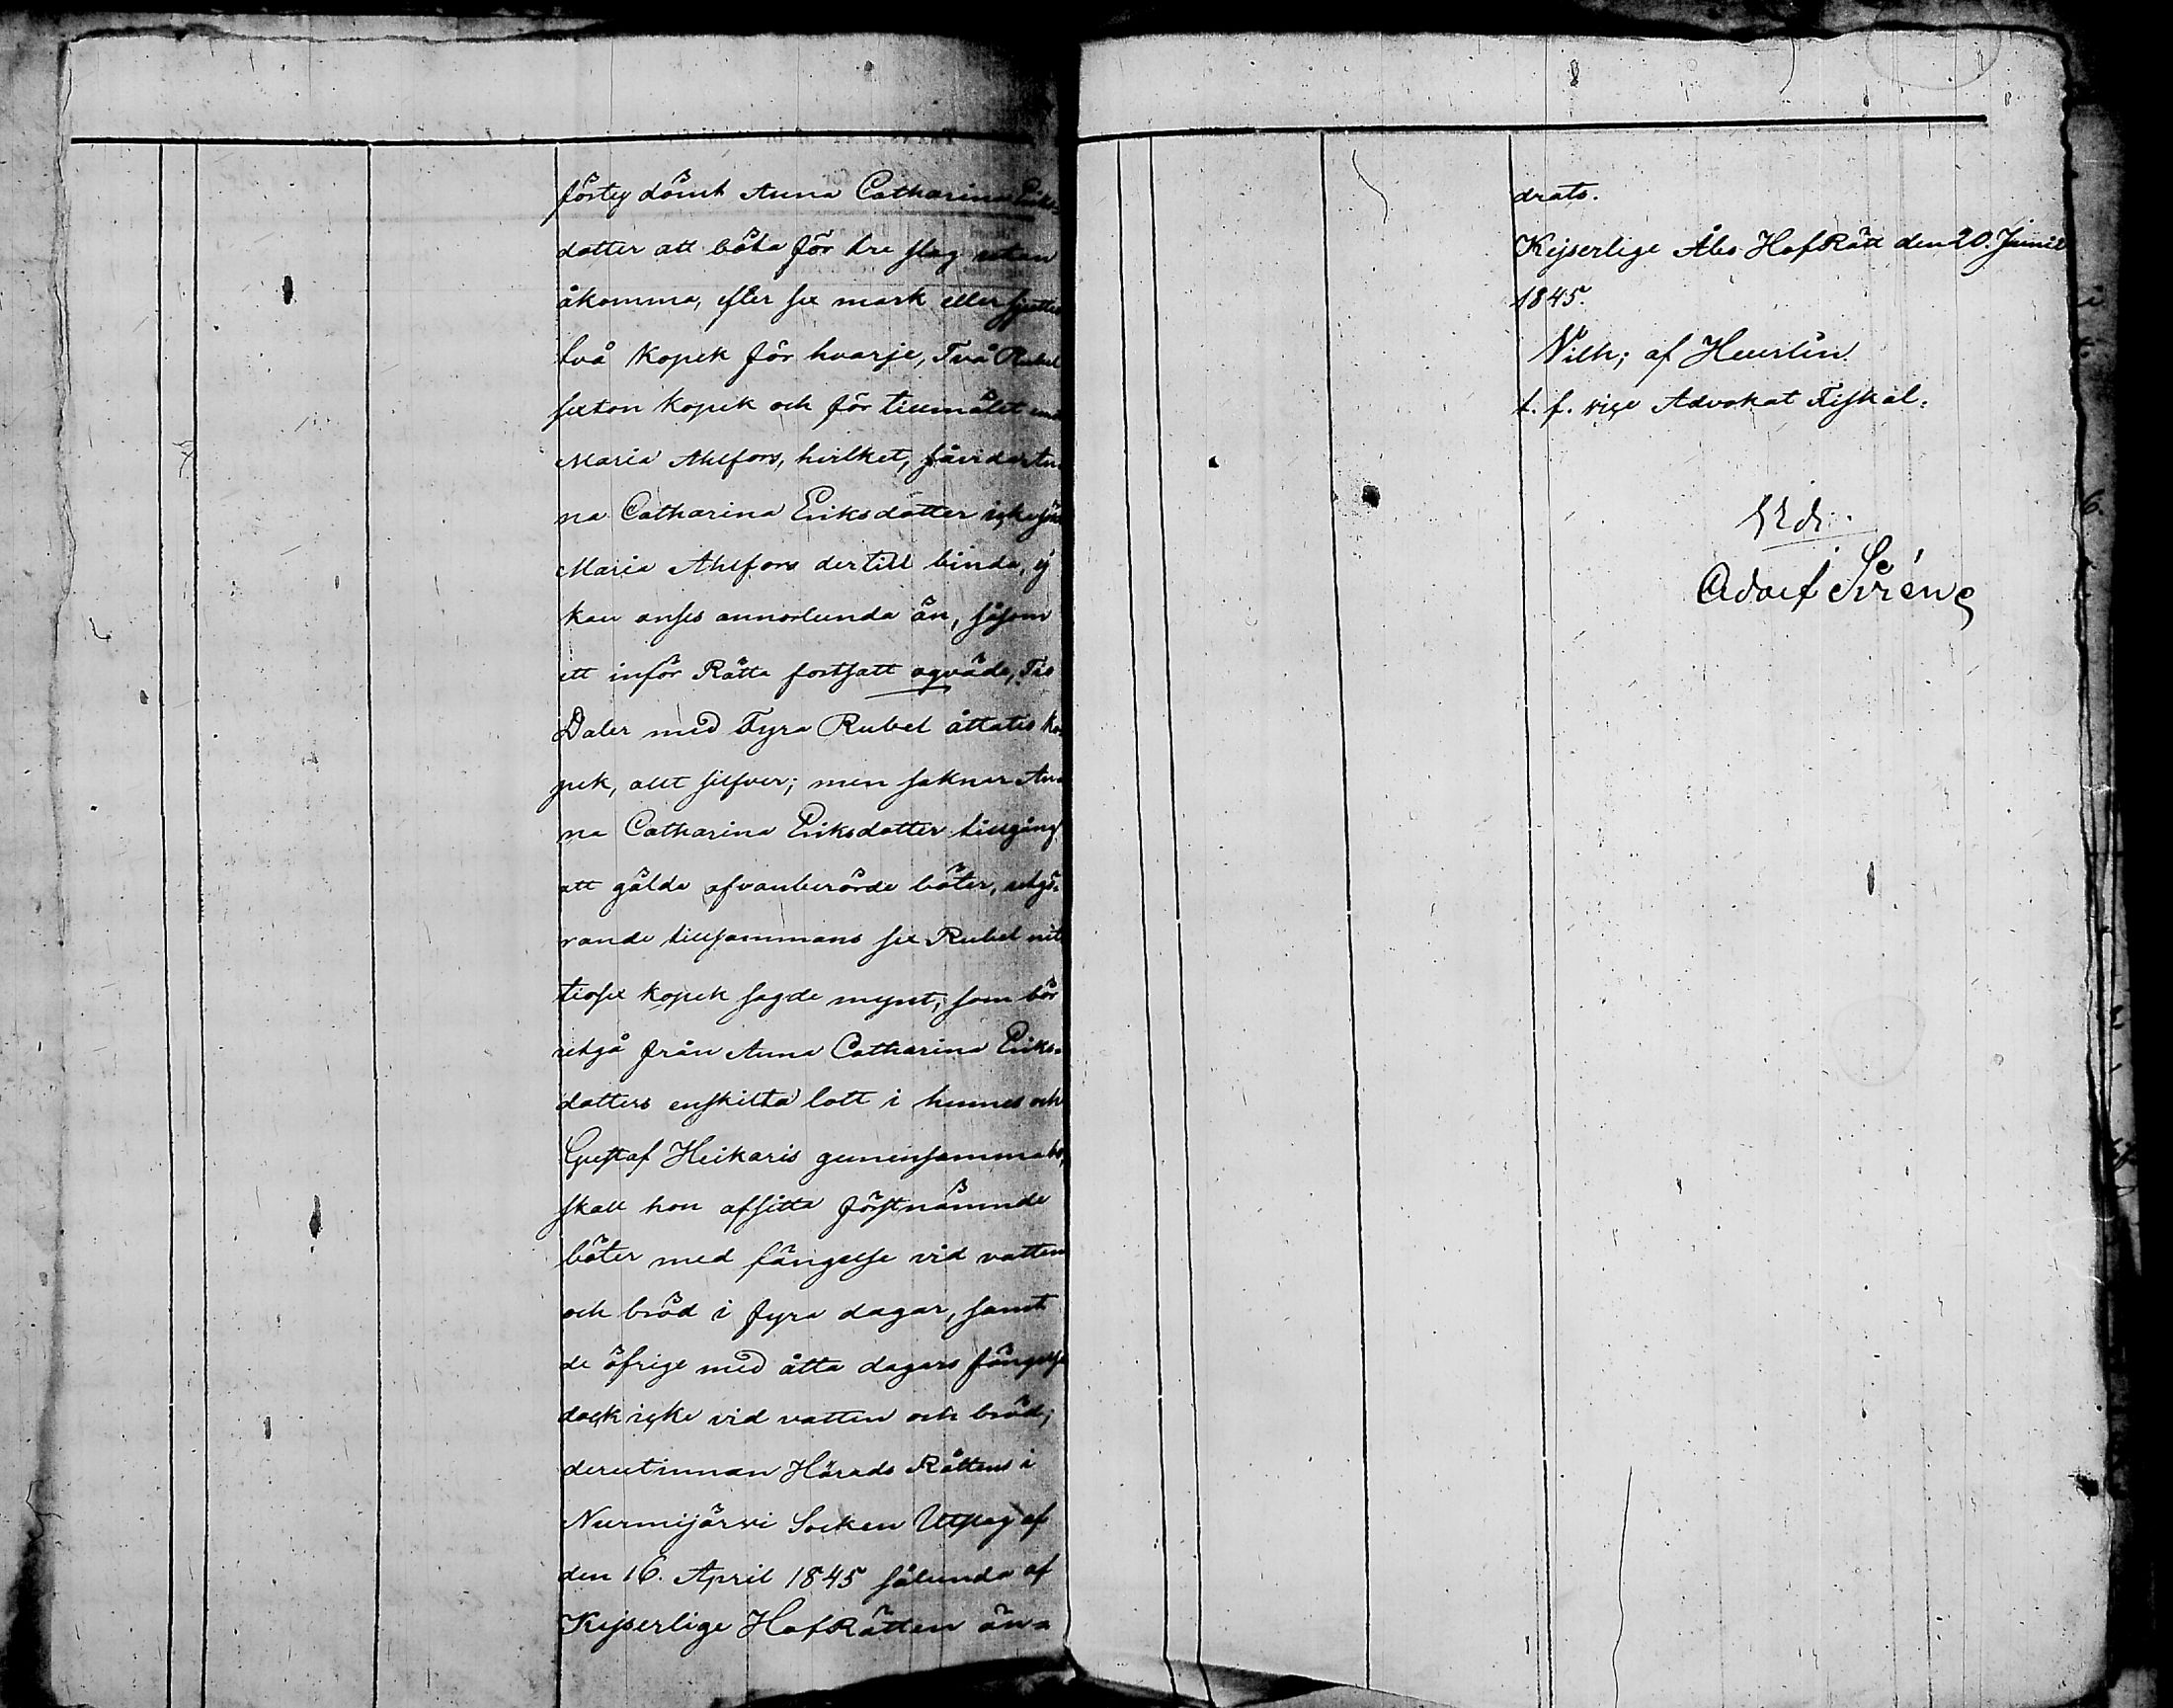 dömt Anna Catharina Eriks-
dotter att böta för tre slag utan
åkomma, efter sex mark eller sjuttio
två kopek för hvarje, Två Rubel
sexton kopek och för tillmålet mot
Maria Ahlfors, hvilket, då An
na Catharina Eriksdotter icke
Maria Ahlfors dertill binda, ej
kan anses annorlunda än, såsom
ett inför Rätta fortsatt oqväde, Tio
Daler med Fyra Rubel åttatio ko-
pek, allt silfver; men saknar An-
na Catharina Eriksdotter tillgång
att gälda ofvanberörde böter, utgö-
rande tillsammans sex Rubel nit-
tiosex kopek sagde mynt, som bör
utgå från Anna Catharina Eriks-
dotters enskilta lott i hennes och
Gustaf Heikaris gemensamma bo,
skall hon afsitta förstnämnde
böter med fängelse vid vatten
och bröd i fyra dagar, samt
de öfrige med åtta dagars fängelse
dock icke vid vatten och bröd;
derutinnan Härads Rättens i
Nurmijärvi Socken Utslag af
den 16. April 1845 sålunda af
Kejserlige HofRätten änd-
drats.
Kejserlige Åbo HofRätt den 20. Junii
1845.
Vilh; af Heurlin
t. f. vice Advokat Fiskal.
Adolf Sirén